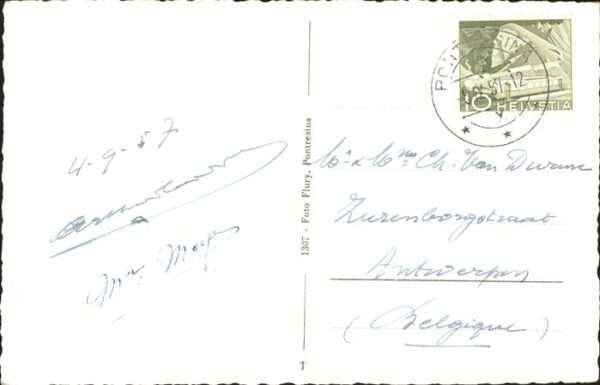 4-9-57
1307 - Foto Flury, Pontresina
PONTRESINA
10 HELVETIA
Mr & Mme Ch. Van Durme
Zurenborgstraat
Antwerpen
(Belgique)